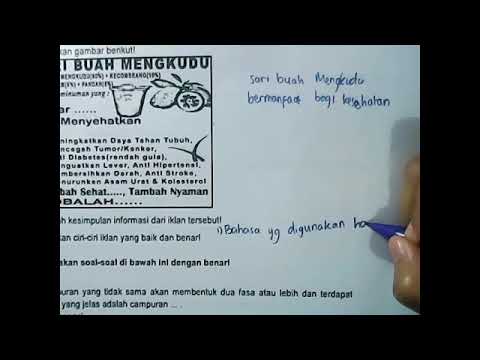 kan gambar berikut!
RI BUAH MENGKUDU
MENGKUDU(80%) + KECOMBRANG(10%)
+ PANDAN(5%)
minuman yang :
ar ......
Menyehatkan
ningkatkan Daya Tahan Tubuh,
ncegah Tumor/Kanker,
ti Diabetes(rendah gula),
nguatkan Lever, Anti Hipertensi,
mbersihkan Darah, Anti Stroke,
nurunkan Asam Urat & Kolesterol
bah Sehat...., Tambah Nyaman
OBALAH......
sari buah Mengkudu
bermanfaat bagi kesehatan
ah kesimpulan informasi dari iklan tersebut!
kan ciri-ciri iklan yang baik dan benar!
1) Bahasa yg digunakan ha
akan soal-soal di bawah ini dengan benar!
puran yang tidak sama akan membentuk dua fasa atau lebih dan terdapat
yang jelas adalah campuran ... .